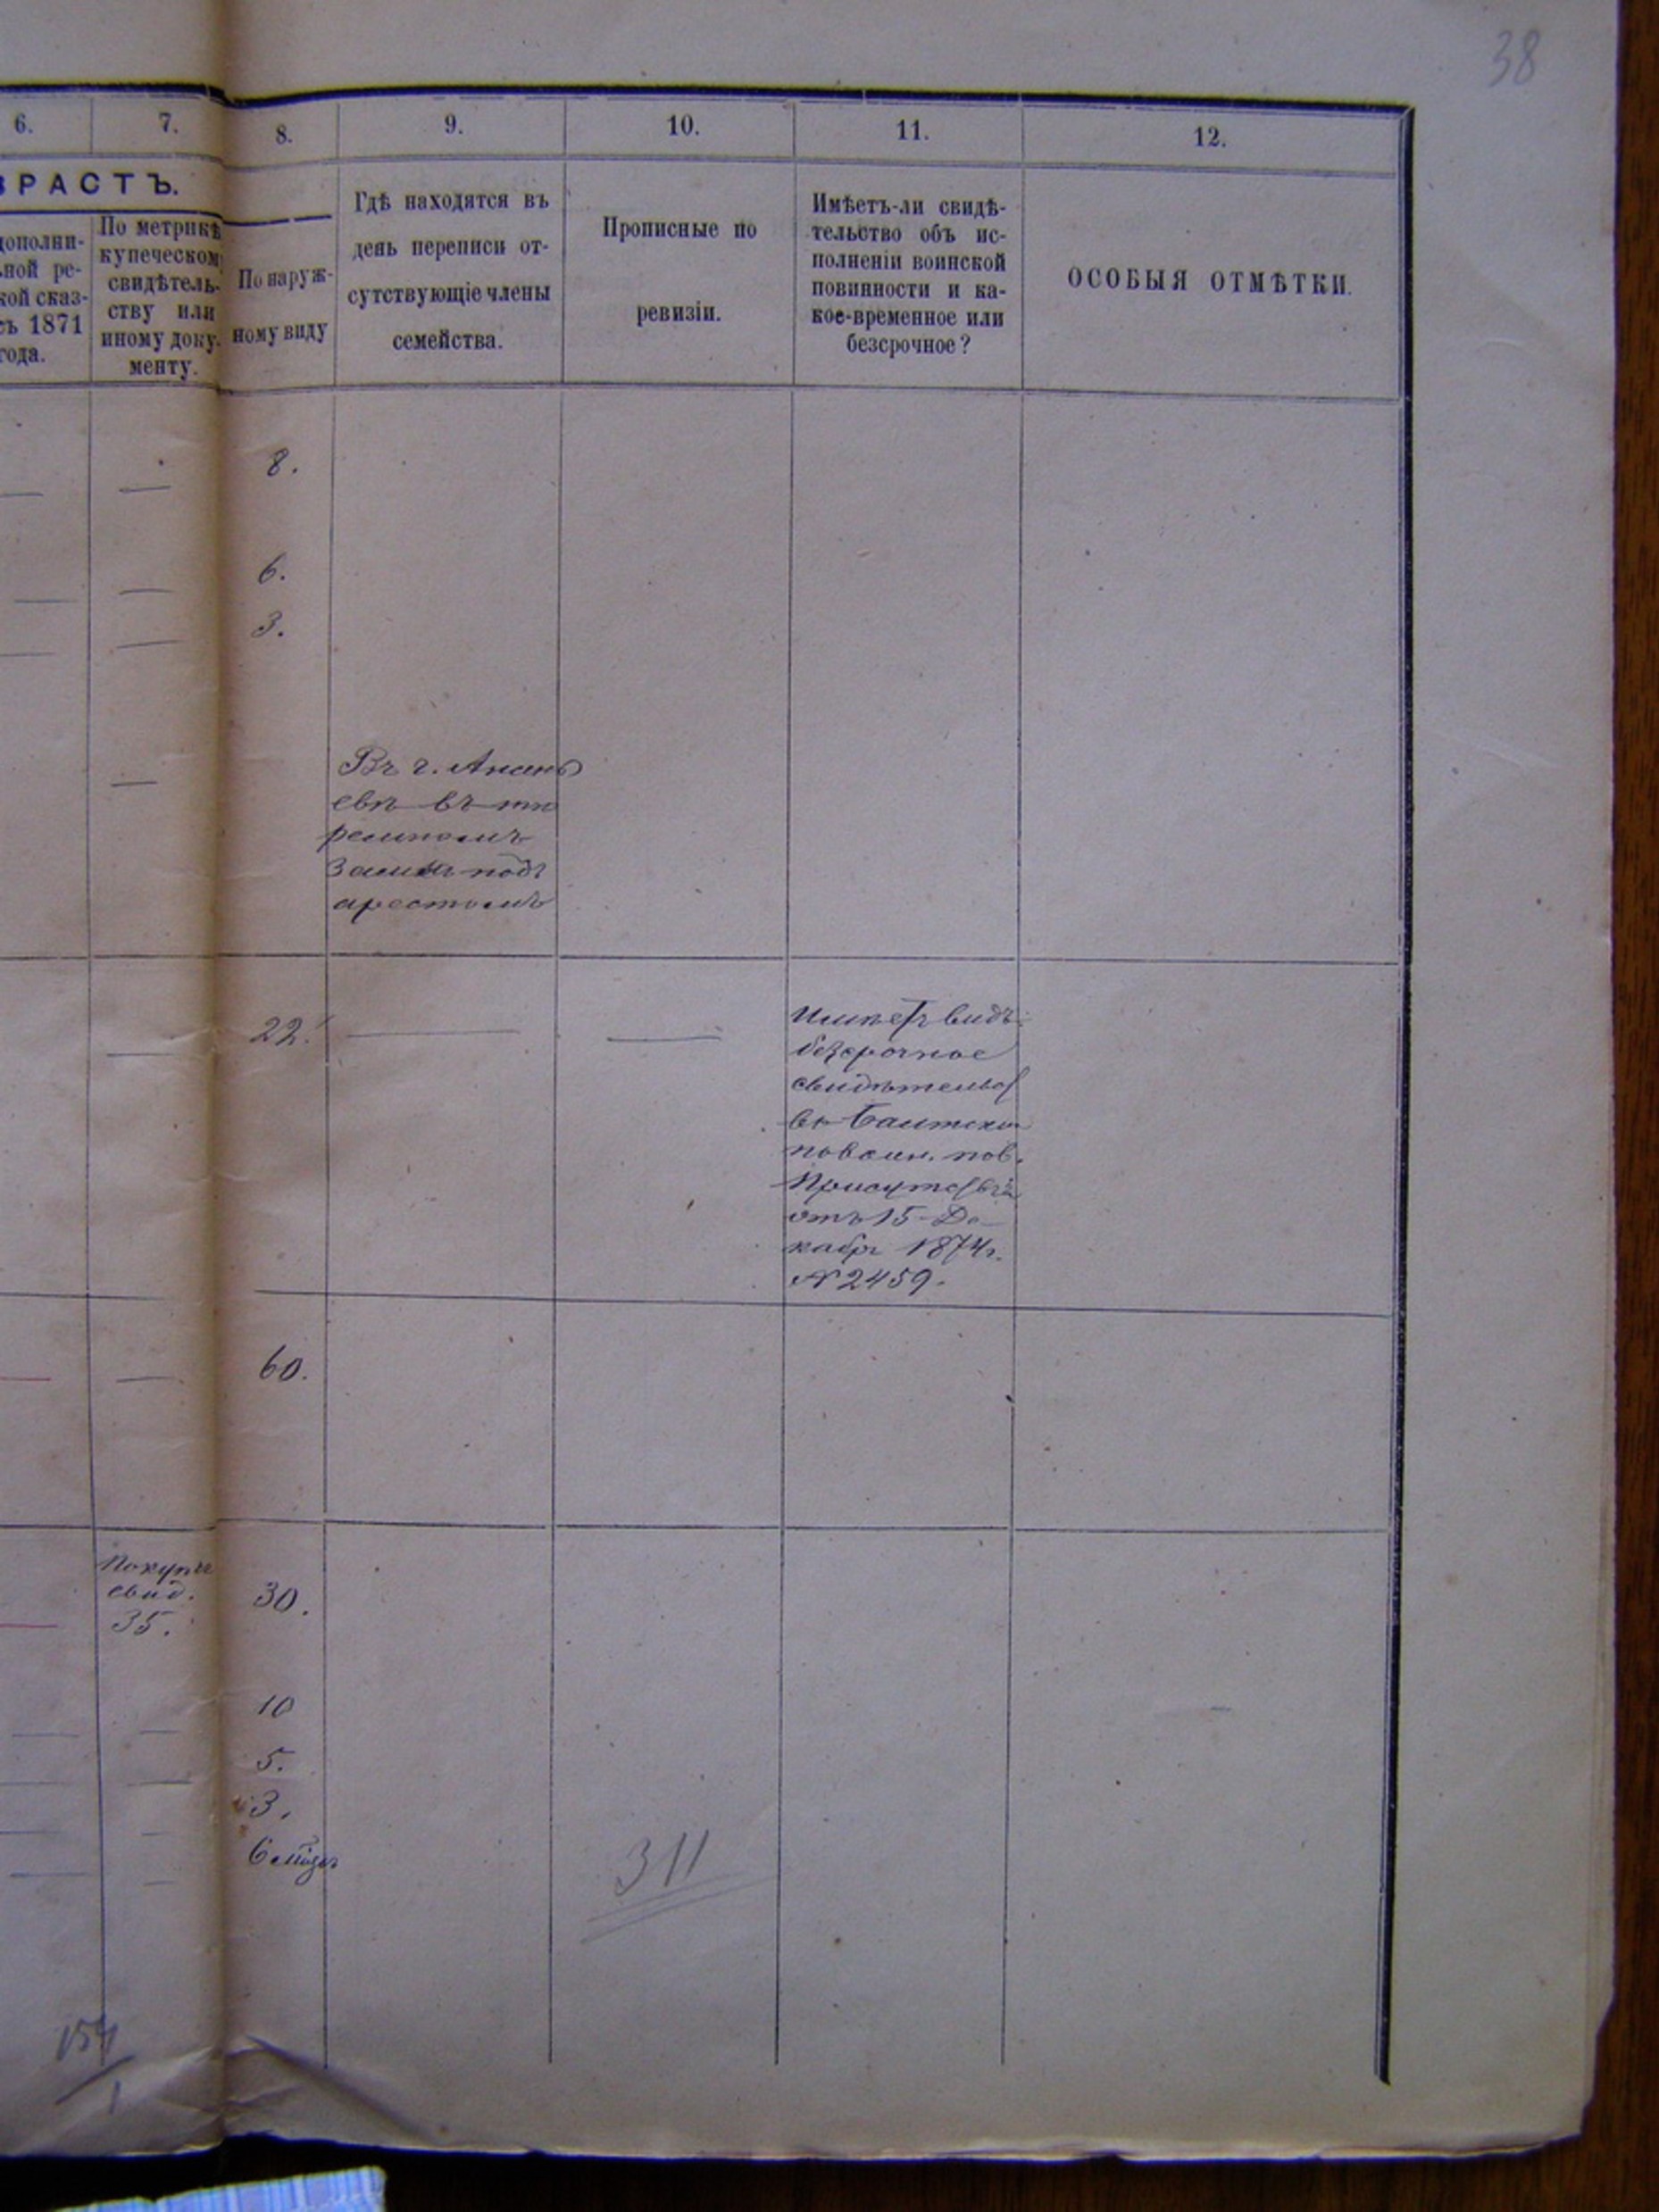 38
6.
7.
8.
9.
10.
11.
12.
ЗРАСТЪ.
дополни-
ьной ре-
кой сказ-
съ 1871
года.
По метрикѣ
купеческому
свидѣтель-
ству или
иному доку-
менту.
По наруж-
ному виду
Гдѣ находятся въ
день переписи от-
сутствующіе члены
семейства.
Прописные по
ревизіи.
Имѣетъ-ли свидѣ-
тельство объ ис-
полненіи воинской
повинности и ка-
кое-временное или
безсрочное?
ОСОБЫЯ ОТМѢТКИ.
8.
6.
3.
Въ г. Анань
евѣ въ тю
ремномъ
Замкѣ подъ
арестомъ
22.
Имѣетъ видъ
безсрочное
свидѣтельст
въ Балтском
по воин. пов.
Присутствія
отъ 15 Де-
кабря 1874 г.
№ 2459.
60.
По купче
свид.
35.
30.
10
5.
3.
6 мѣсяц
311
154
1